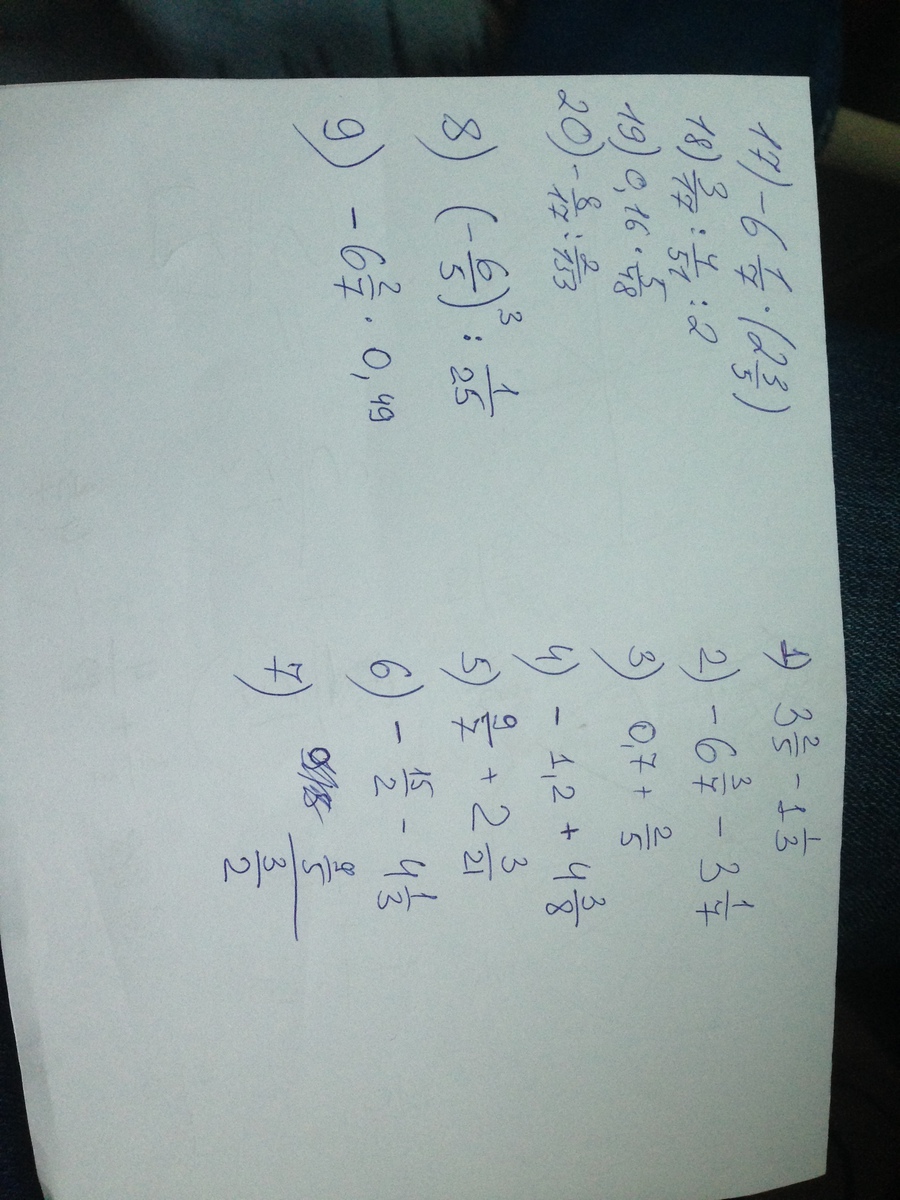 17) -6 1/7 · (2 3/5)
18) 3/17 : 4/51 : 2
19) 0,16 · 5/48
20) - 8/17 : 2/153
8) (- 6/5)³ : 1/25
9) - 6 2/7 · 0,49
1) 3 2/5 - 1 1/3
2) - 6 3/7 - 3 1/7
3) 0,7 + 2/5
4) - 1,2 + 4 3/8
5) 9/7 + 2 3/21
6) - 15/2 - 4 1/3
7)